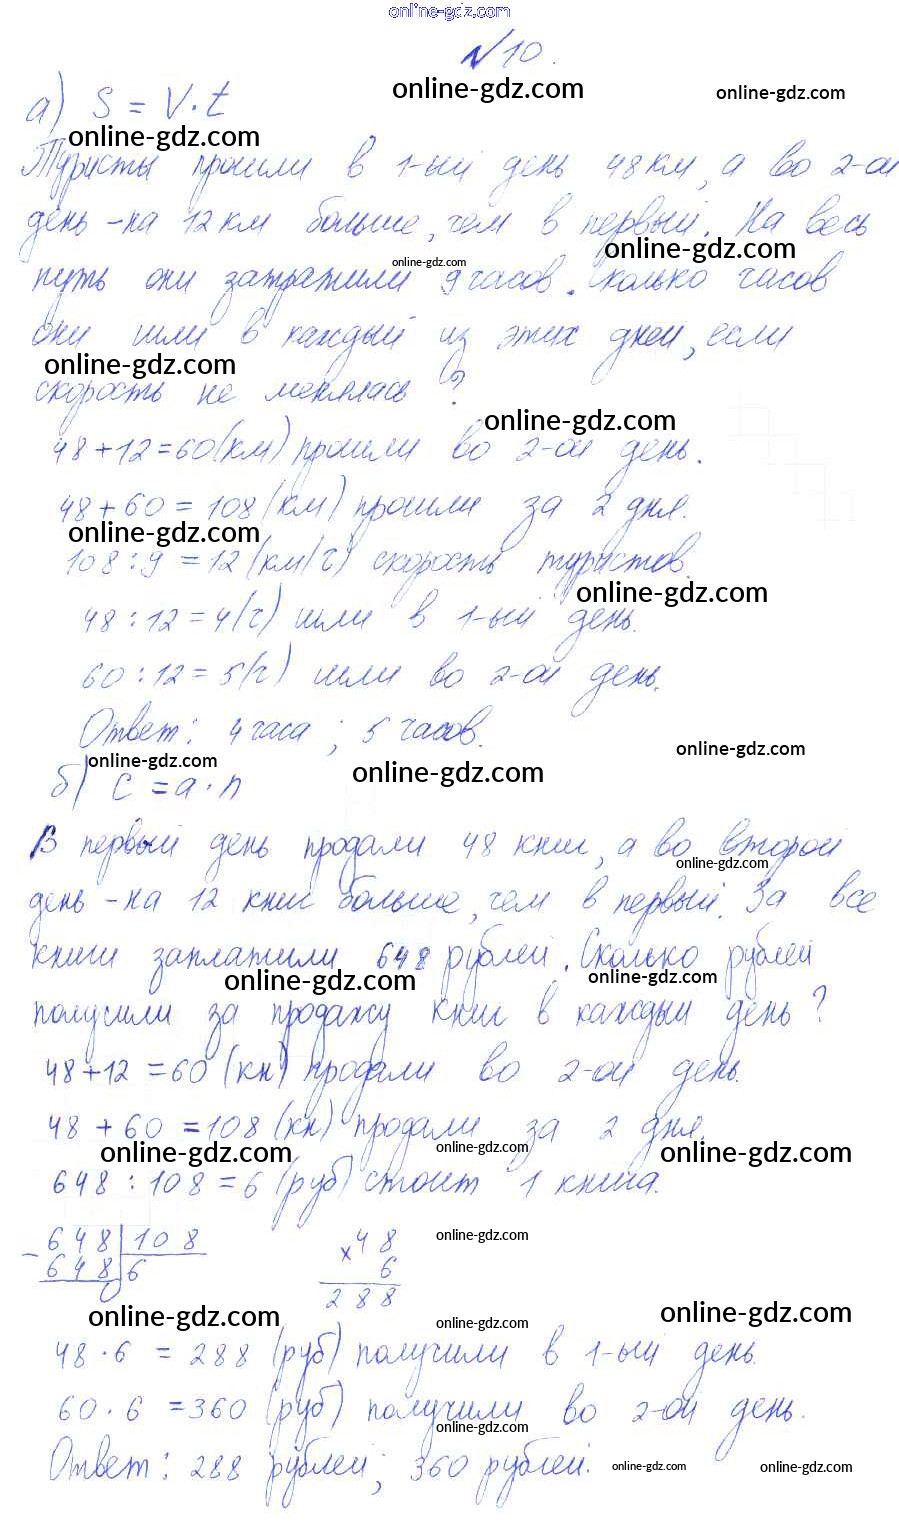 online-gdz.com
№ 10.
online-gdz.com online-gdz.com
а) S = V · t
online-gdz.com
Туристы прошли в 1-ый день 48 км, а во 2-ой
день - на 12 км больше, чем в первый. На весь
online-gdz.com online-gdz.com
путь они затратили 9 часов. Сколько часов
они шли в каждый из этих дней, если
online-gdz.com
скорость не менялась?
online-gdz.com
48 + 12 = 60 (км) прошли во 2-ой день.
48 + 60 = 108 (км) прошли за 2 дня.
online-gdz.com
108 : 9 = 12 (км/ч) скорость туристов.
online-gdz.com
48 : 12 = 4 (ч) шли в 1-ый день.
60 : 12 = 5 (ч) шли во 2-ой день.
Ответ: 4 часа; 5 часов.
online-gdz.com online-gdz.com online-gdz.com
б) c = a · n
В первый день продали 48 книг, а во второй
online-gdz.com
день - на 12 книг больше, чем в первый. За все
книги заплатили 648 рублей. Сколько рублей
online-gdz.com online-gdz.com
получили за продажу книг в каждый день?
48 + 12 = 60 (кн) продали во 2-ой день.
48 + 60 = 108 (кн) продали за 2 дня.
online-gdz.com online-gdz.com online-gdz.com
648 : 108 = 6 (руб) стоит 1 книга.
- 648 | 108 × 48 online-gdz.com
648 | 6 6
0 288
online-gdz.com online-gdz.com online-gdz.com
48 · 6 = 288 (руб) получили в 1-ый день.
60 · 6 = 360 (руб) получили во 2-ой день.
online-gdz.com
Ответ: 288 рублей; 360 рублей.
online-gdz.com online-gdz.com